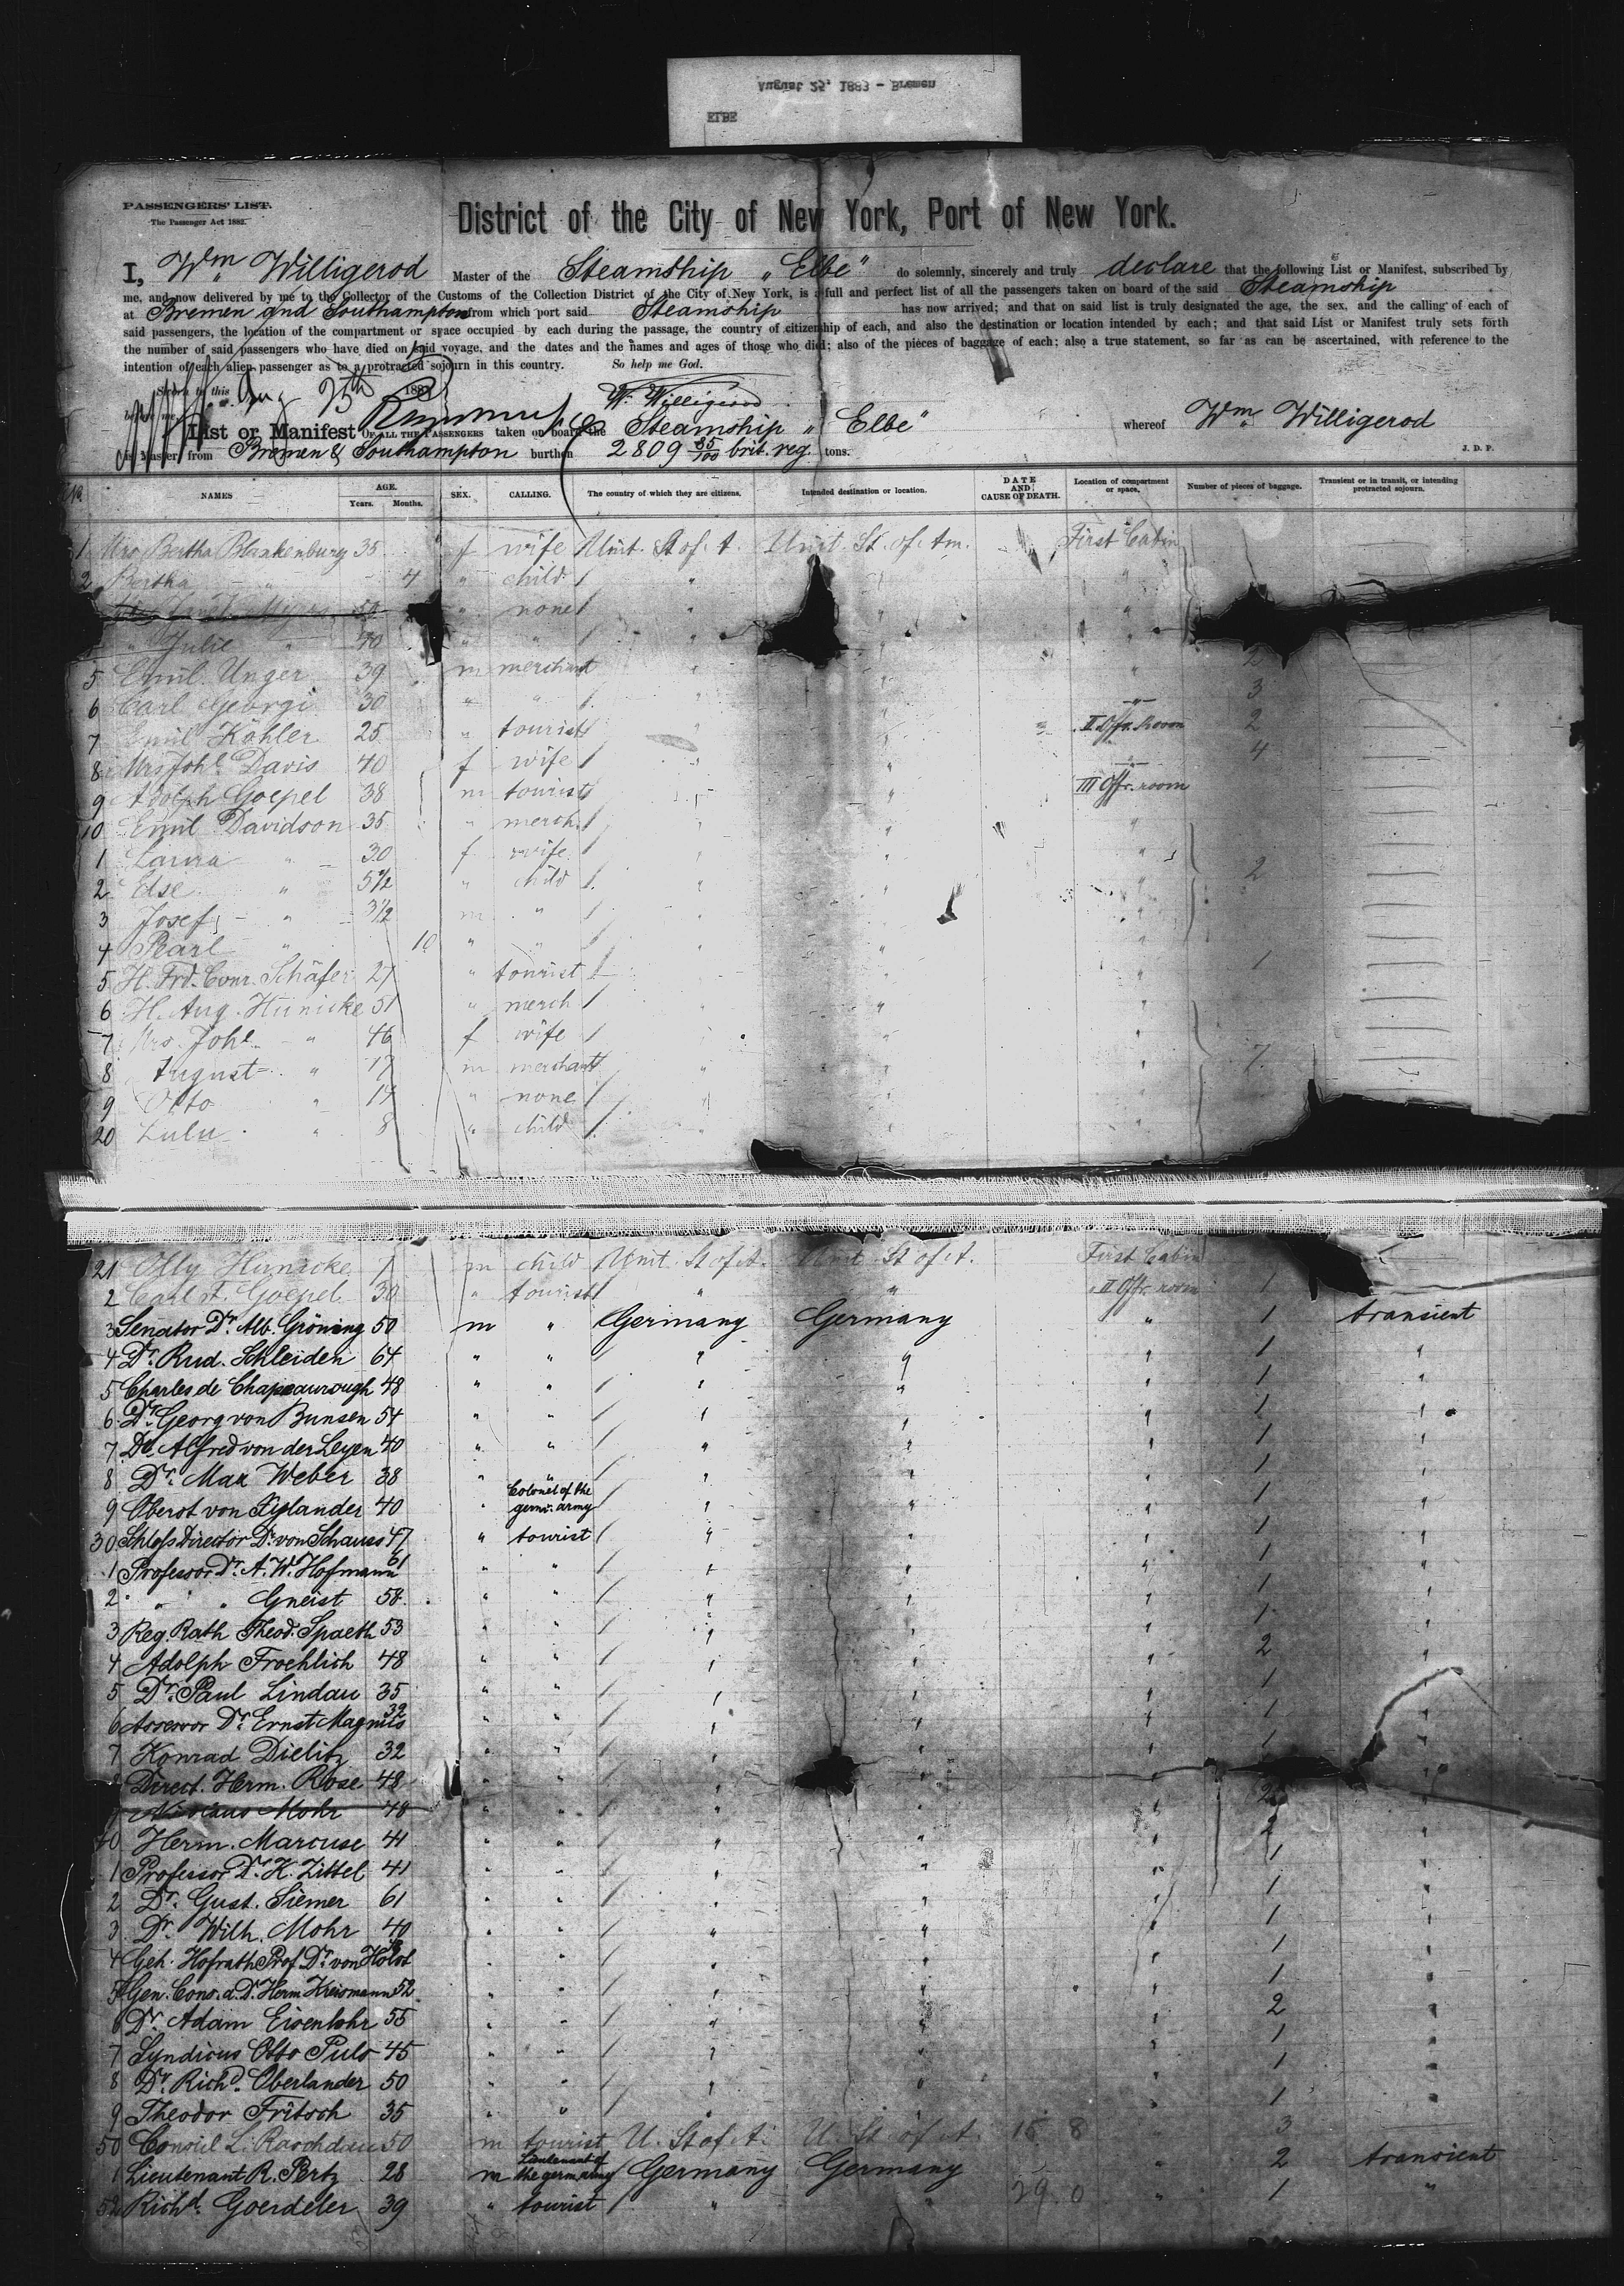 August 25, 1883 - Bremen
ELBE
PASSENGERS' LIST.
The Passenger Act 1882.
District of the City of New York, Port of New York.
I, Wm Willigerod Master of the Steamship „Elbe" do solemnly, sincerely and truly declare that the following List or Manifest, subscribed by
me, and now delivered by me to the Collector of the Customs of the Collection District of the City of New York, is a full and perfect list of all the passengers taken on board of the said Steamship
at Bremen and Southampton from which port said Steamship has now arrived; and that on said list is truly designated the age, the sex, and the calling of each of
said passengers, the location of the compartment or space occupied by each during the passage, the country of citizenship of each, and also the destination or location intended by each; and that said List or Manifest truly sets forth
the number of said passengers who have died on said voyage, and the dates and the names and ages of those who died; also of the pieces of baggage of each; also a true statement, so far as can be ascertained, with reference to the
intention of each alien passenger as to a protracted sojourn in this country. So help me God.
Sworn to this Aug 25th 188
before me W. Willigerod
List or Manifest OF ALL THE PASSENGERS taken on board the Steamship „Elbe" whereof Wm Willigerod
is Master, from Bremen & Southampton burthen 2809 85/100 brit. reg. tons. J. D. P.
No. NAMES AGE. Years. Months. SEX. CALLING. The country of which they are citizens. Intended destination or location. DATE AND CAUSE OF DEATH. Location of compartment or space. Number of pieces of baggage. Transient or in transit, or intending protracted sojourn.
1 Mrs Bertha Blankenburg 35 f wife Unit. St. of. A. Unit. St. of. Am. First Cabin
2 Bertha " 4 " child " "
50 " none " "
" Julie " 40 " " " "
5 Emil Unger 39 m merchant " " " 2
6 Carl Georgi 30 " " " " " 3
7 Emil Köhler 25 " tourist " " II Offr. Room 2
8 Mrs Johe Davis 40 f wife " " 4
9 Adolph Goepel 38 m tourist " III Offr. room
10 Emil Davidson 35 " merch. " " "
1 Laura " 30 f wife " " "
2 Else " 5 1/2 " child " " " 2
3 Josef " 3 1/2 m " " " "
4 Pearl " 10 " " " " "
5 H. Frd. Conr. Schäfer 27 " tourist " " " 1
6 H. Aug. Hunicke 51 " merch " " "
7 Mrs. Johe " 46 f wife " " "
8 August " 17 m merchant " " " 7
9 Otto " 14 " none " " "
20 Lulu " 8 " child " " "
21 Olly Hunicke 1 m child Unit. St of A. Unit. St of A. First Cabin
2 Carl F. Goepel 30 " tourist " " II Offr. room 1
3 Senator Dr. Alb. Gröning 50 m " Germany Germany " 1 transient
4 Dr. Rud. Schleiden 64 " " " " " 1 "
5 Charles de Chapeaurough 48 " " " " " 1 "
6 Dr. Georg von Bunsen 54 " " " " " 1 "
7 Dr. Alfred von der Leyen 40 " " " " " 1 "
8 Dr. Max Weber 38 " " " " " 1 "
9 Oberst von Xylander 40 " Colonel of the germ. army " " " 1 "
30 Schloss Director Dr. von Schauss 47 " tourist " " " 1 "
1 Professor Dr. A. W. Hofmann 61 " " " " " 1 "
2 " " Gneist 58 " " " " " 1 "
3 Reg. Rath Theod. Spaeth 53 " " " " " 1 "
4 Adolph Froehlich 48 " " " " " 2 "
5 Dr. Paul Lindau 35 " " " " " 1 "
6 Assessor Dr. Ernst Magnus 32 " " " " " 1 "
7 Konrad Dielitz 32 " " " " " 1 "
8 Direct. Herm. Rose 48 " " " " " 2 "
9 Nicolaus Mohr 48 " " " " " "
40 Herm. Marcuse 41 " " " " " 2 "
1 Professor Dr. K. Zittel 41 " " " " " 1 "
2 Dr. Gust. Siemer 61 " " " " " 1 "
3 Dr. Wilh. Mohr 40 " " " " " 1 "
4 Geh. Hofrath Prof. Dr. von Holst " " " " " 1 "
5 Gen. Cons. a. D. Herm Kreismann 52 " " " " " 1 "
6 Dr. Adam Eisenlohr 55 " " " " " 2 "
7 Syndicus Otto Puls 45 " " " " " 1 "
8 Dr. Richd. Oberlander 50 " " " " " 1 "
9 Theodor Fritsch 35 " " " " " 1 "
50 Consul L. Raschdau 50 m tourist U. St of A. U. St of A. 15 8 " 3
1 Lieutenant R. Pertz 28 m Lieutenant of the germ. army Germany Germany " 2 transient
52 Richd. Goerdeler 39 " tourist " " 29 0 " 1 "